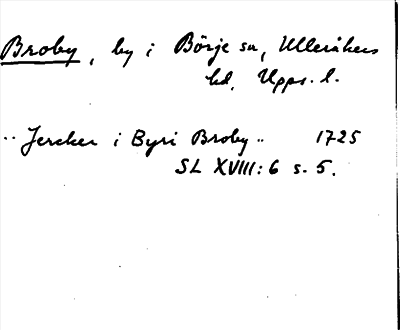 Broby, by i Börje sn, Ulleråkers
hd, Upps. l.
.. Jercker i Byri Broby .. 1725
SL XVIII: 6 s. 5.